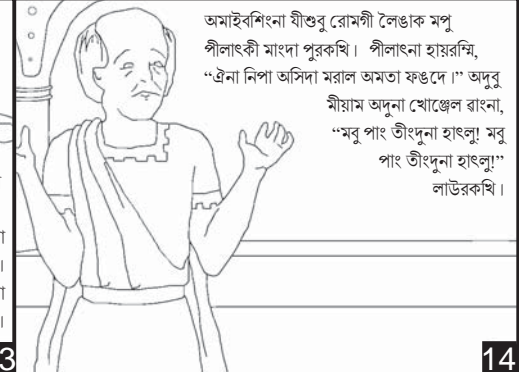 অমাইবশিংনা যীশুবু রোমগী লৈঙাক মপু
পীলাৎকী মাংদা পুরকখি। পীলাৎনা হায়রম্মি,
“ঐনা নিপা অসিদা মরাল অমতা ফঙদে।” অদুবু
মীয়াম অদুনা খোঞ্জেল ৱাংনা,
“মবু পাং তীংদুনা হাৎলু! মবু
পাং তীংদুনা হাৎলু!”
লাউরকখি।
া
।
া
।
3
14